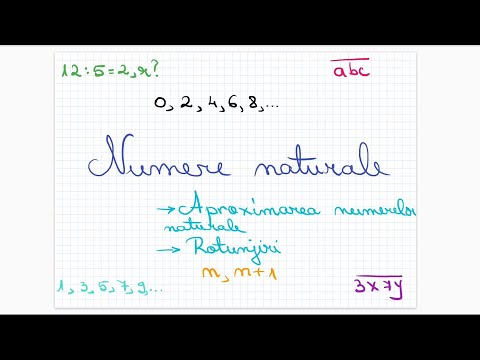 12:5=2, r?
a̅b̅c̅
0, 2, 4, 6, 8, ...
Numere naturale
→ Aproximarea numerelor
naturale
→ Rotunjiri
n, n+1
1, 3, 5, 7, 9, ...
3̅x̅7̅y̅